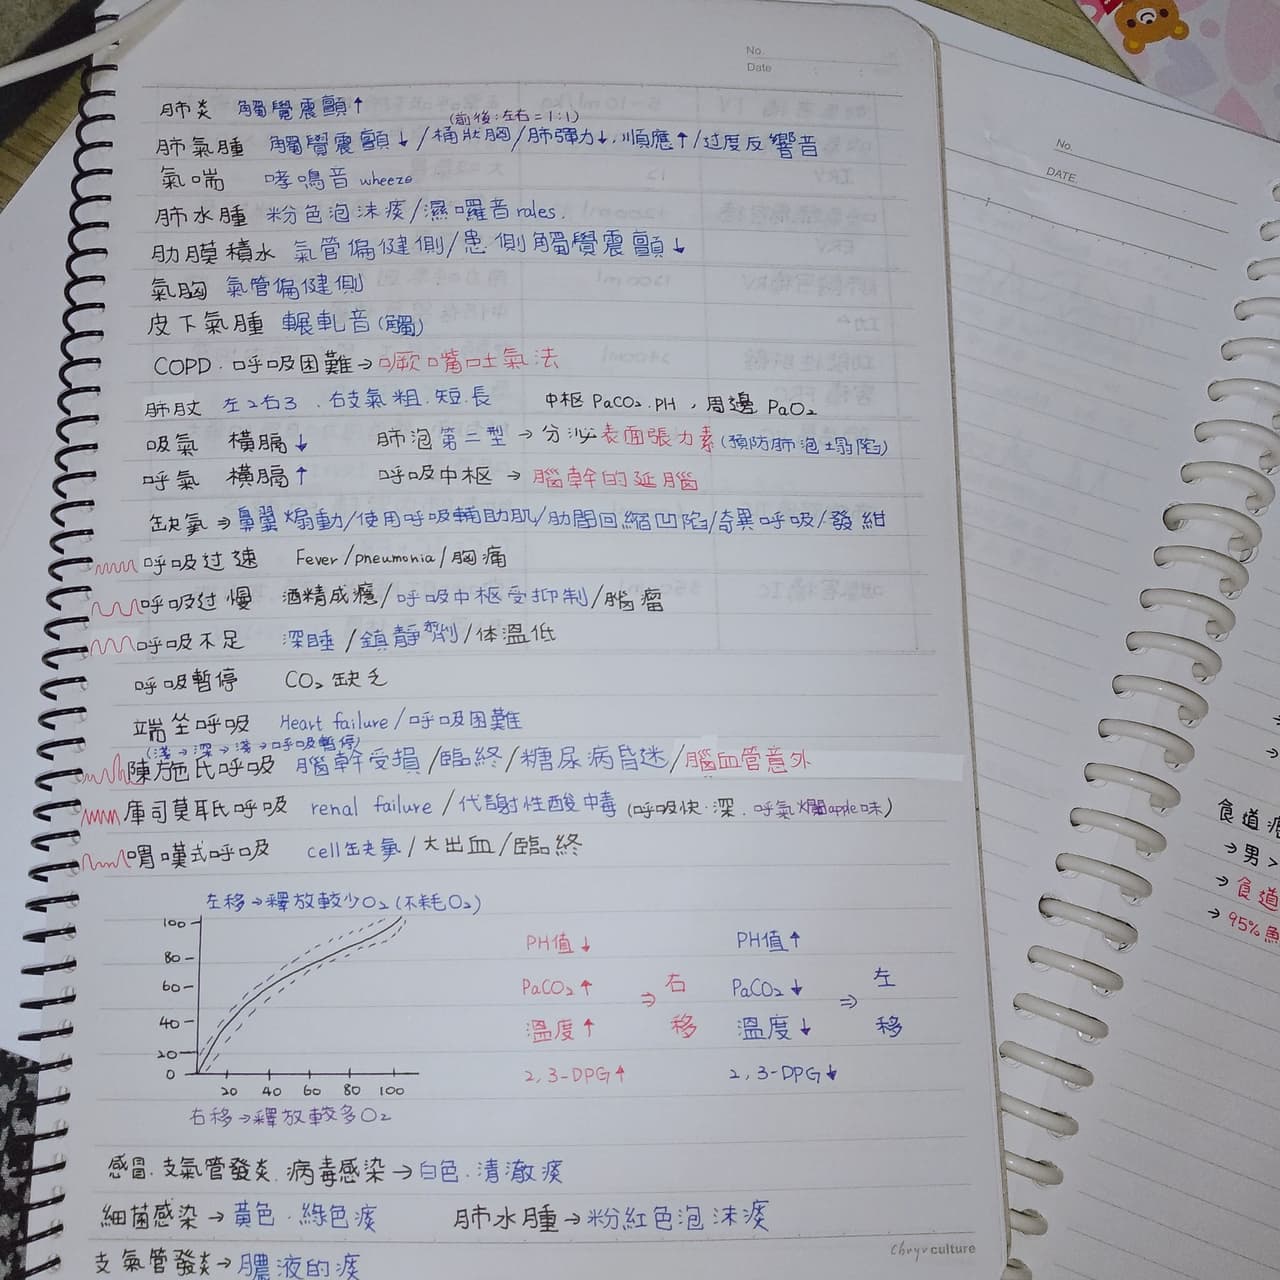 No.
Date
肺炎 觸覺震顫↑
(前後:左右=1:1)
肺氣腫 觸覺震顫↓/桶狀胸/肺彈力↓.順應↑/过度反響音
氣喘 哮鳴音 wheeze
肺水腫 粉色泡沫痰/濕囉音 rales.
肋膜積水 氣管偏健側/患側觸覺震顫↓
氣胸 氣管偏健側
皮下氣腫 輾軋音(觸)
COPD.呼吸困難→噘嘴吐氣法
肺 左2右3.右支氣粗.短.長 中枢 PaCO₂.PH,周邊 PaO₂
吸氣 橫膈↓ 肺泡第二型→分泌表面張力素(預防肺泡塌陷)
呼氣 橫膈↑ 呼吸中枢→腦幹的延腦
缺氧⇒鼻翼煽動/使用呼吸輔助肌/肋間回縮凹陷/奇異呼吸/發紺
呼吸过速 Fever/pneumonia/胸痛
呼吸过慢 酒精成癮/呼吸中枢受抑制/腦瘤
呼吸不足 深睡/鎮靜劑/体溫低
呼吸暫停 CO₂缺乏
端坐呼吸 Heart failure/呼吸困難
(淺→深→淺→呼吸暫停)
陳施氏呼吸 腦幹受損/臨終/糖尿病昏迷/腦血管意外
庫司莫耳氏呼吸 renal failure/代謝性酸中毒(呼吸快.深.呼氣爛apple味)
喟嘆式呼吸 cell缺氧/大出血/臨終
左移→釋放較少O₂(不耗O₂)
100
80
60
40
20
0
20 40 60 80 100
右移→釋放較多O₂
PH值↓
PaCO₂↑
溫度↑
2,3-DPG↑
⇒右移
PH值↑
PaCO₂↓
溫度↓
2,3-DPG↓
⇒左移
感冒.支氣管發炎.病毒感染→白色.清澈痰
細菌感染→黃色.綠色痰 肺水腫→粉紅色泡沫痰
支氣管發炎→膿液的痰
culture
No.
DATE
食道
→男>
→食道
→95%